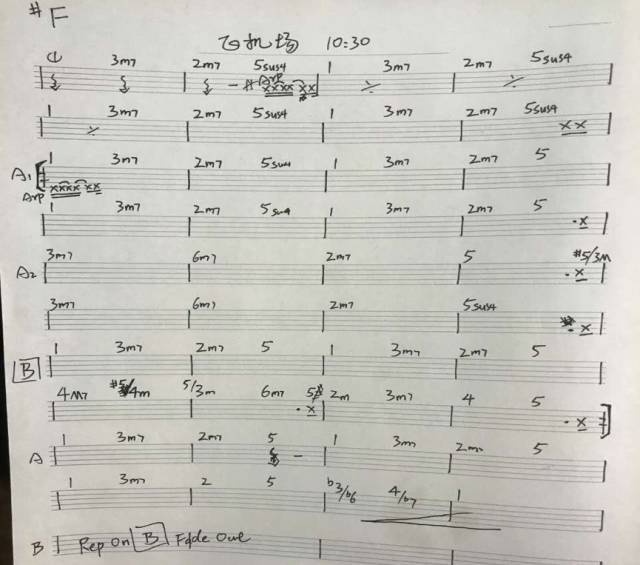 #F
飞机场 10:30
① 3m7 2m7 5sus4 1 3m7 2m7 5sus4
Arp
1 3m7 2m7 5sus4 1 3m7 2m7 5sus4
A1 1 3m7 2m7 5sus4 1 3m7 2m7 5
Arp
1 3m7 2m7 5sus4 1 3m7 2m7 5
A2 3m7 6m7 2m7 5 #5/3M
3m7 6m7 2m7 5sus4
B 1 3m7 2m7 5 1 3m7 2m7 5
4M7 4m 5/3m 6m7 2m 3m7 4 5
A 1 3m7 2m7 5 1 3m 2m 5
1 3m7 2 5 b3/b6 4/b7 1
B Rep On B Fade Out